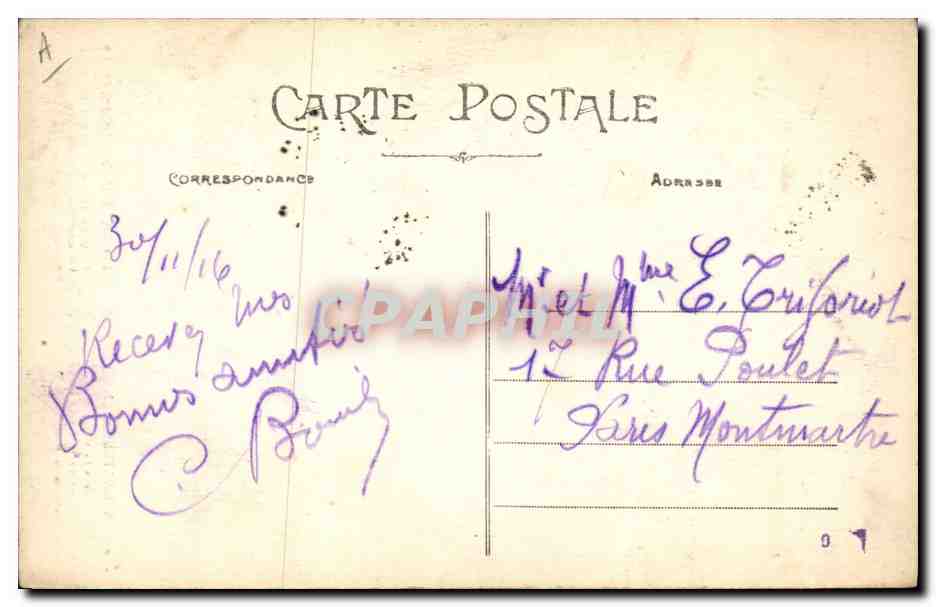 A
CARTE POSTALE
CORRESPONDANCE
ADRESSE
30/11/16
Recevez mes
Bonnes amitiés
C.
CPAPHIL
Mr et Mme E.
17 Rue Poulet
Paris Montmartre
9